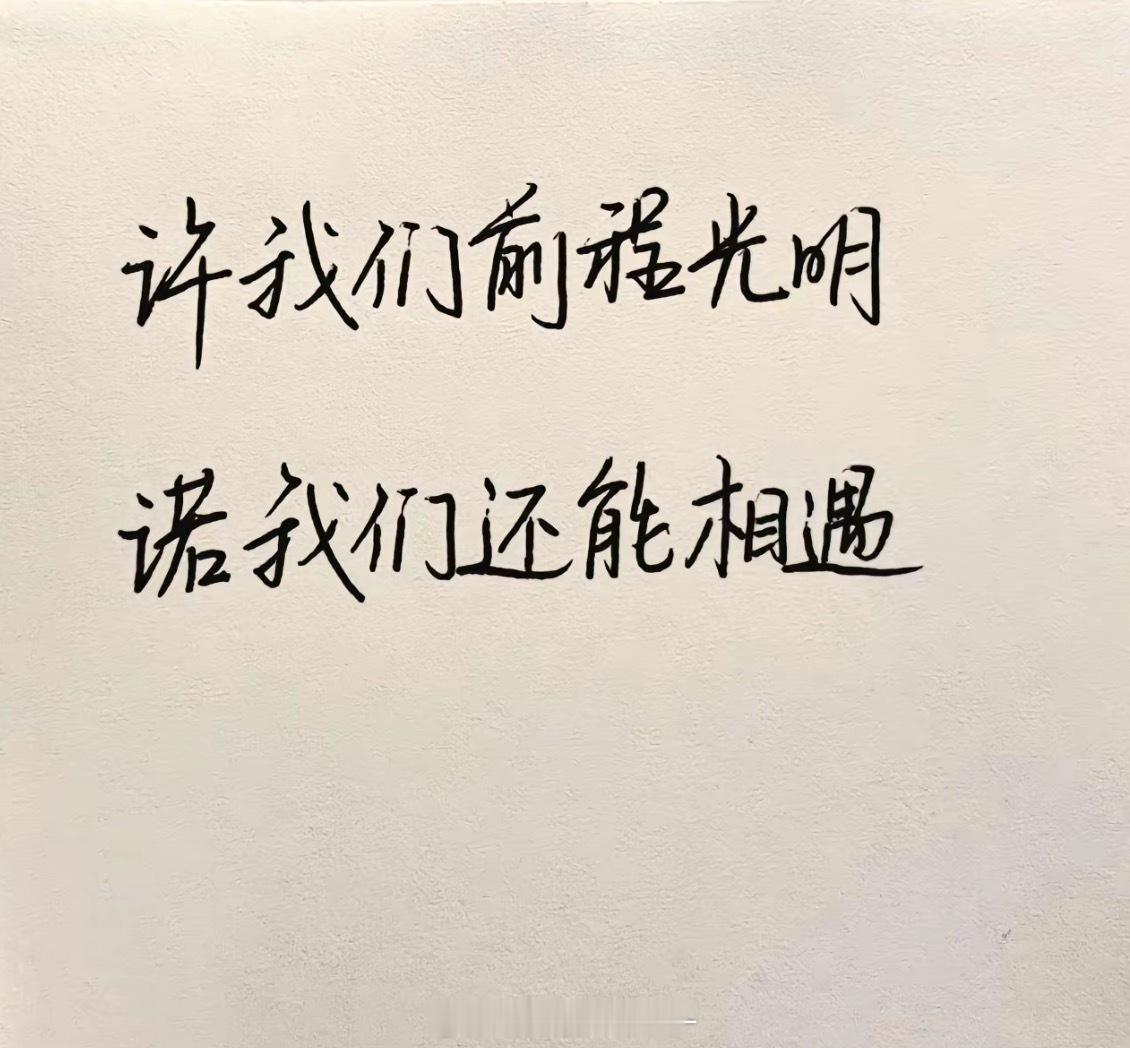 许我们前程光明
诺我们还能相遇